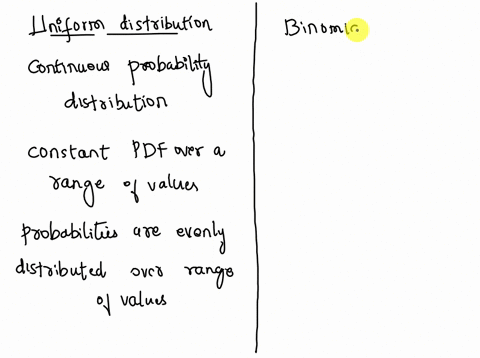 Uniform distribution
Continuous probability
distribution
constant PDF over a
range of values
probabilities are evenly
distributed over range
of values
Binomi